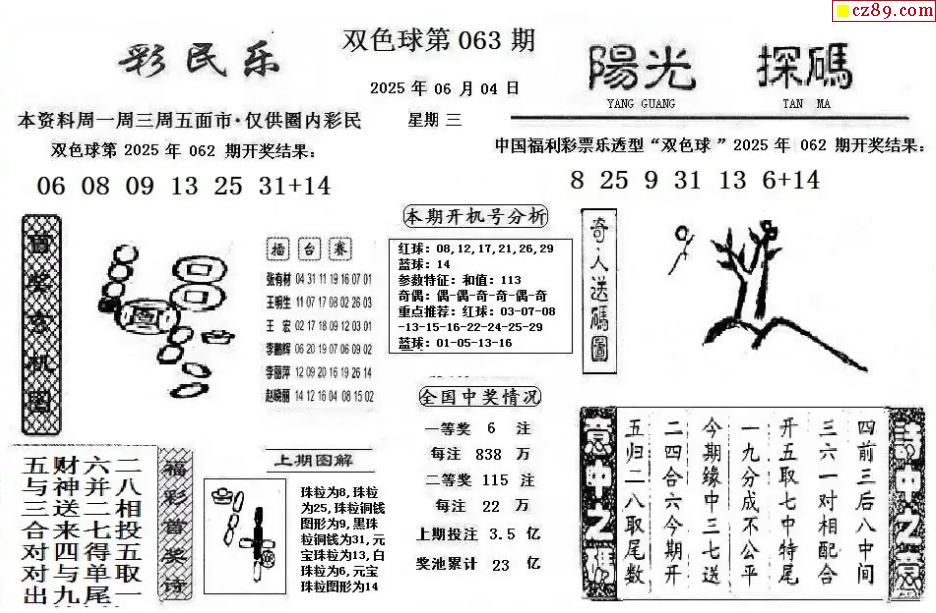 cz89.com
彩民乐
双色球第 063 期
2025 年 06 月 04 日
星期 三
陽光 探碼
YANG GUANG TAN MA
本资料周一周三周五面市·仅供圈内彩民
双色球第 2025 年 062 期开奖结果:
06 08 09 13 25 31+14
中国福利彩票乐透型“双色球 ”2025 年 062 期开奖结果:
8 25 9 31 13 6+14
擂 台 赛
张有材 04 31 11 19 16 07 01
王明生 11 07 17 08 02 26 03
王 宏 02 17 18 09 12 03 01
李鹏辉 06 20 19 07 06 09 02
李丽萍 12 09 20 16 19 26 14
赵晓丽 14 12 16 04 08 15 02
本期开机号分析
红球: 08,12,17,21,26,29
蓝球: 14
参数特征: 和值: 113
奇偶: 偶-偶-奇-奇-偶-奇
重点推荐: 红球: 03-07-08
-13-15-16-22-24-25-29
蓝球: 01-05-13-16
奇人送碼圖
全国中奖情况
一等奖 6 注
每注 838 万
二等奖 115 注
每注 22 万
上期投注 3.5 亿
奖池累计 23 亿
二八相投五取一
六并二七得单尾
财神送来四与九
五与三合对对出
福彩首奖诗
上期图解
珠粒为8, 珠粒
为25, 珠粒铜钱
图形为9, 黑珠
粒铜钱为31, 元
宝珠粒为13, 白
珠粒为6, 元宝
珠粒图形为14
四前三后八中间
三六一对相配合
开五取七中特尾
一九分成不公平
今期缘中三七送
二四合六今期开
五归二八取尾数